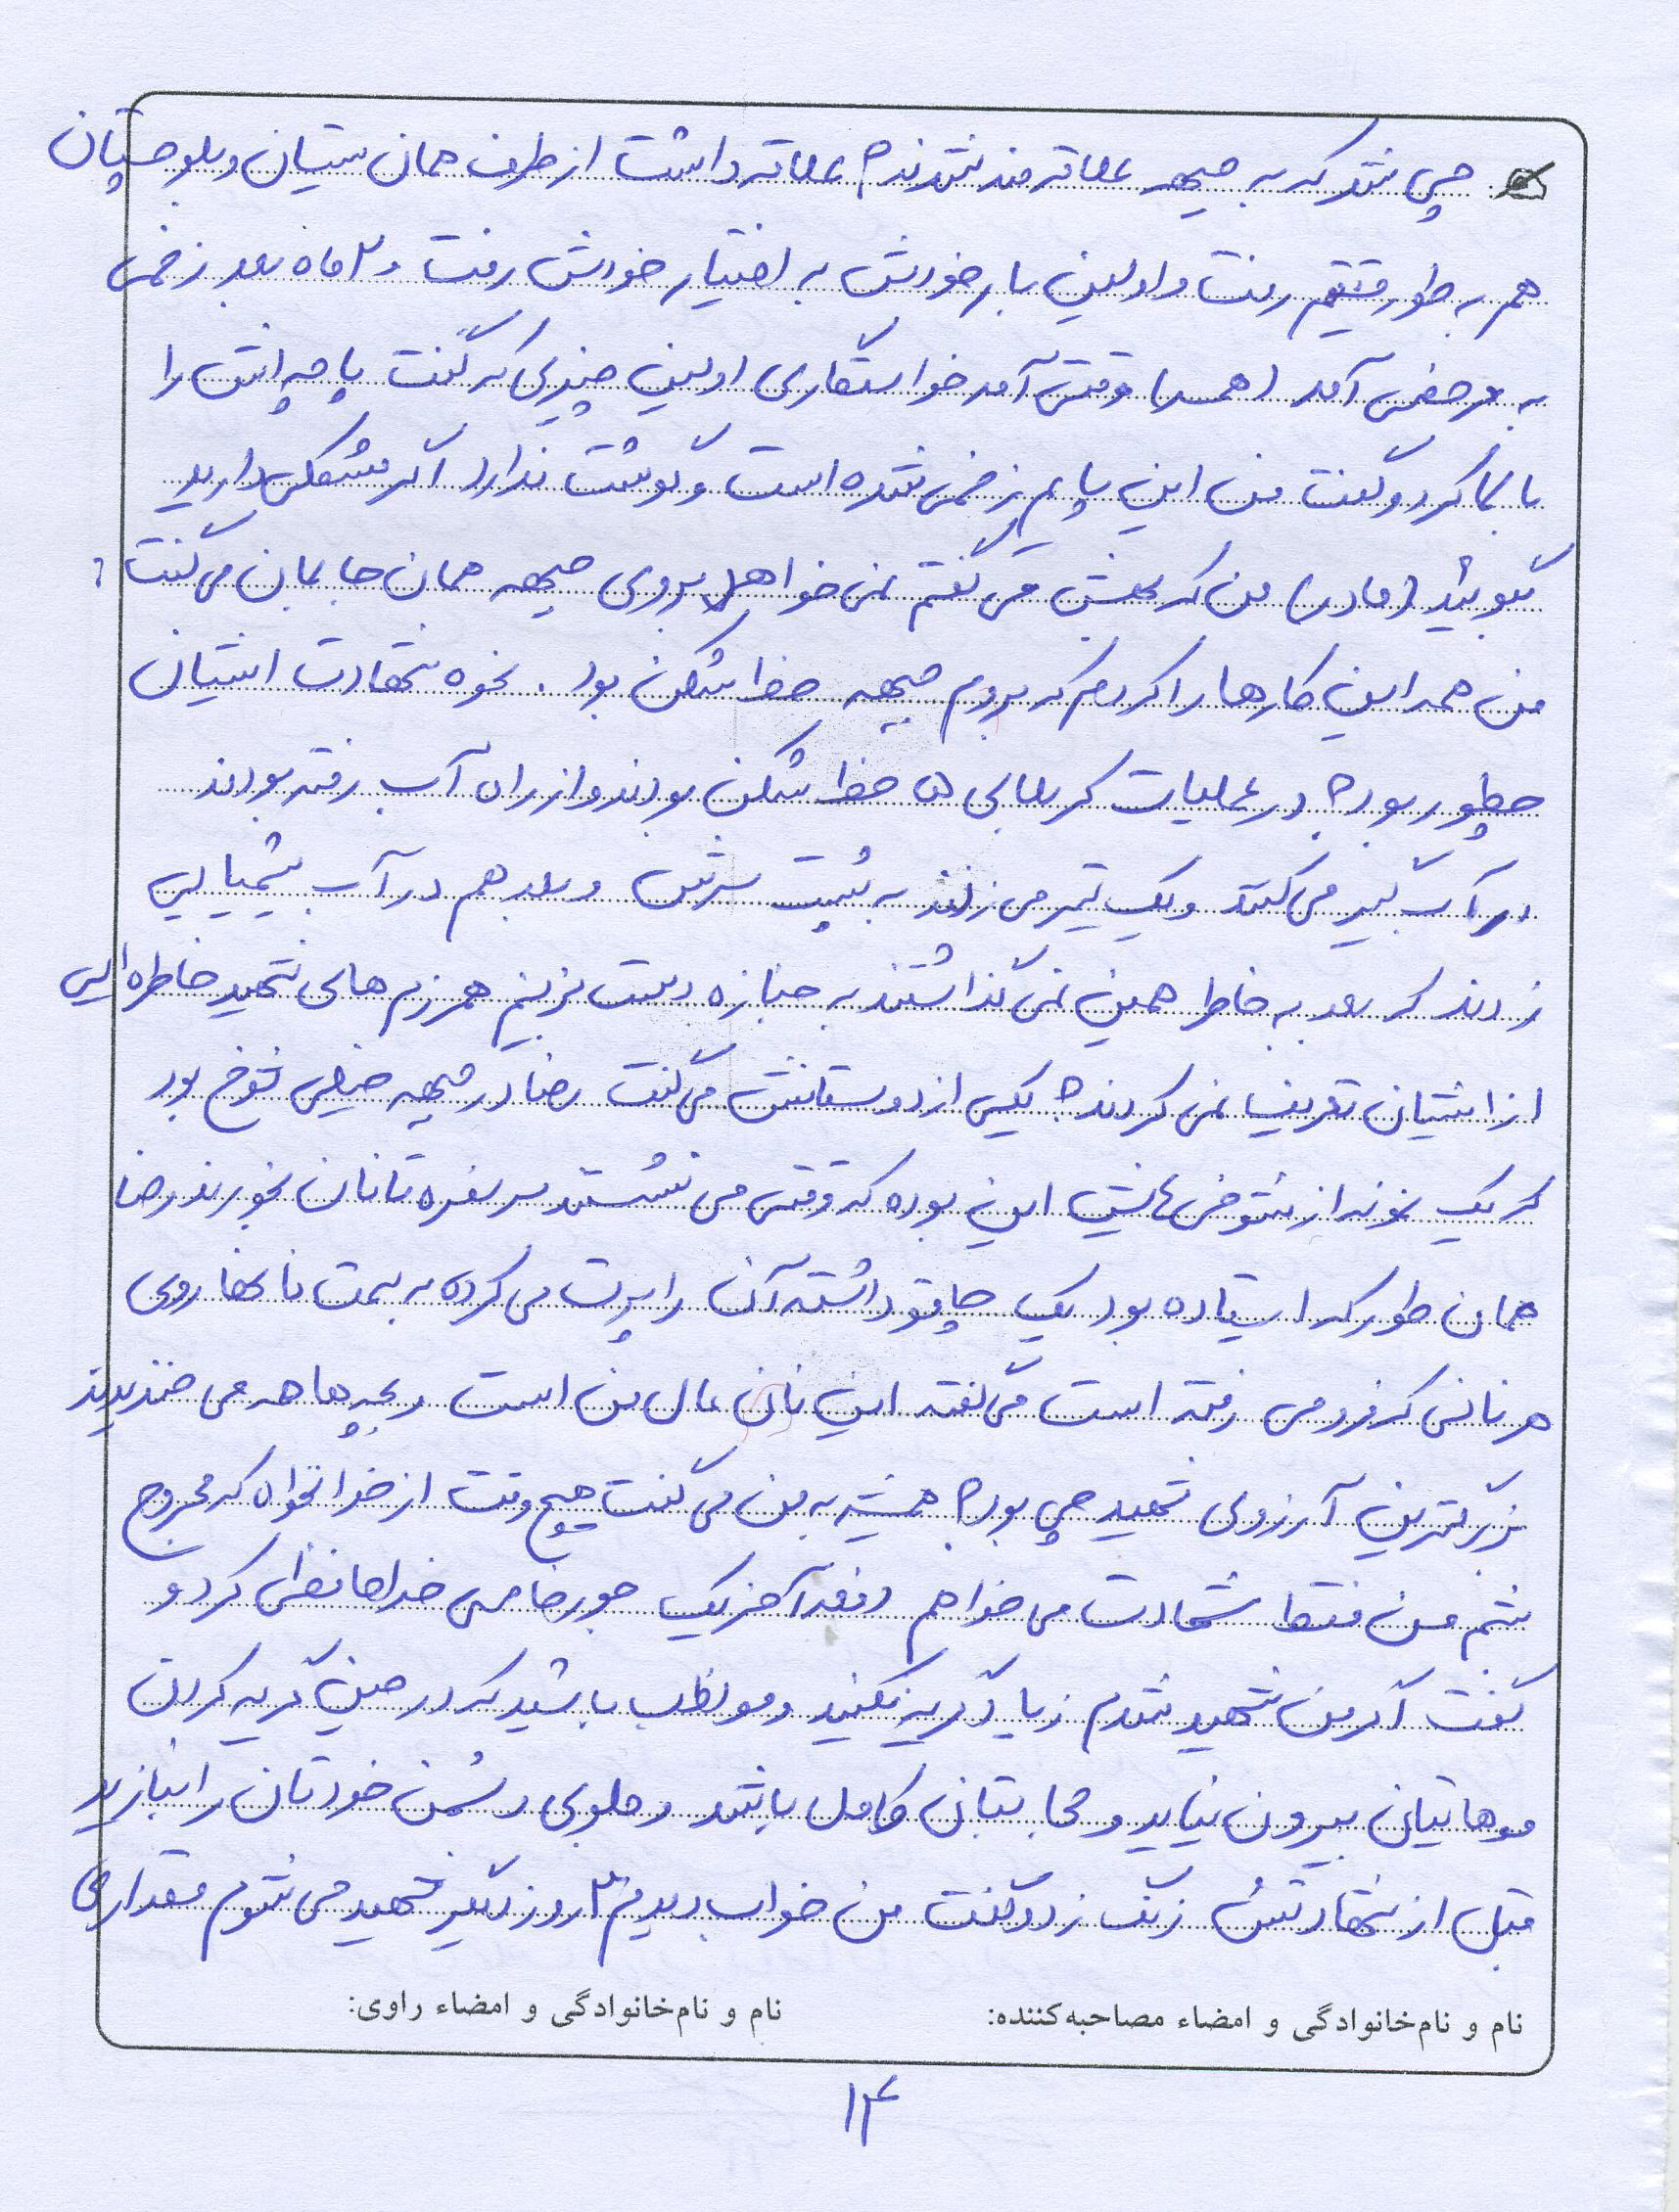 چی شد که به جبهه علاقه مند شدند؟ علاقه داشت از طرف همان سیستان و بلوچستان
هم به طور مستقیم رفت و اولین بار خودش به اختیار خودش رفت و ۲ ماه بعد زخمی
به مرخصی آمد (همسر) وقتی آمد خواستگاری اولین چیزی که گفت پاچه اش را
بالا کرد و گفت من این پایم زخمی شده است و گوشت ندارد اگر مشکلی دارید
بگوئید (مادر) من که بهش می گفتم نمی خواهد بروی جبهه همان جا بمان می گفت:
من همه این کارها را کردم که بروم جبهه خط شکن بود. نحوه شهادت ایشان
چطور بود؟ در عملیات کربلای ۵ خط شکن بودند و از راه آب رفته بودند
در آب گیر می کنند و یک تیر می زنند به پشت سرش و بعد هم در آب شیمیایی
زدند که بعد به خاطر همین نمی گذاشتند به جنازه دست بزنیم همرزم های شهید خاطره ایی
از ایشان تعریف نمی کردند؟ یکی از دوستانش می گفت رضا در جبهه خیلی شوخ بود
که یک نمونه از شوخی هایش این بوده که وقتی می نشستند سر سفره تا نان بخورند رضا
همان طور که ایستاده بود یک چاقو داشته آن را پرت می کرده به سمت نانها روی
هر نانی که فرو می رفته است می گفته این نان مال من است و بچه ها همه می خندیدند
بزرگترین آرزوی شهید چی بود؟ همیشه به من می گفت هیچ وقت از خدا نخواه که مجروح
بشم من فقط شهادت می خواهم دفعه آخر یک جور خاصی خداحافظی کرد و
گفت اگر من شهید شدم زیاد گریه نکنید و مواظب باشید که در حین گریه کردن
موهایتان بیرون نیاید و حجابتان کامل باشد و جلوی دشمن خودتان را نبازید
قبل از شهادتش زنگ زد و گفت من خواب دیدم ۲ روز دیگر شهید می شوم مقداری
نام و نام‌خانوادگی و امضاء مصاحبه‌کننده: نام و نام‌خانوادگی و امضاء راوی:
۱۴